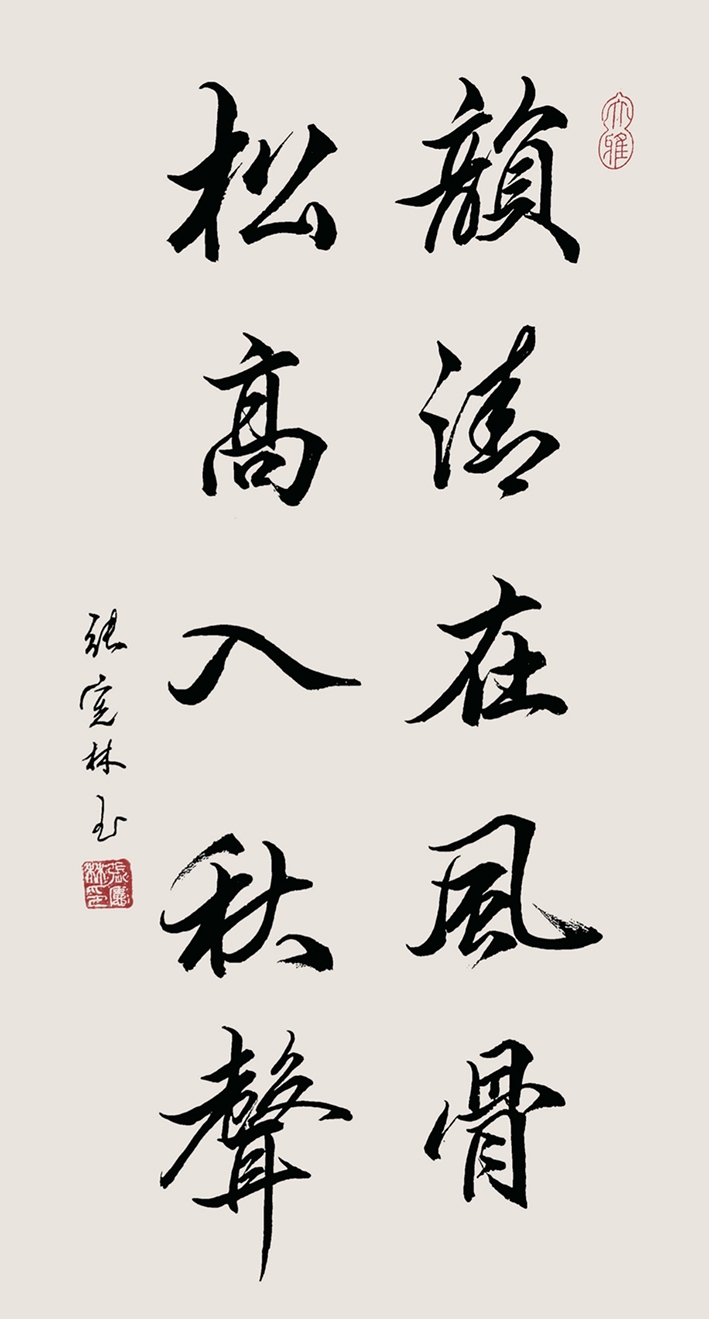 大雅
韻清在風骨
松高入秋聲
張寬林書